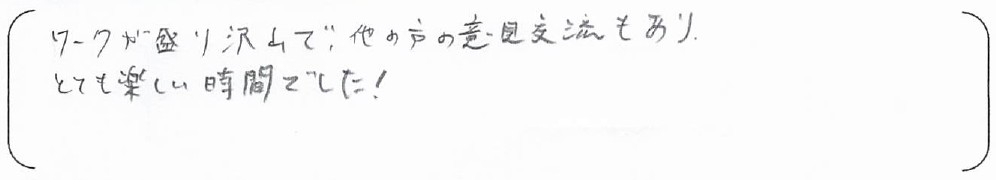 ワークが盛り沢山で、他の方の意見交流もあり、
とても楽しい時間でした!